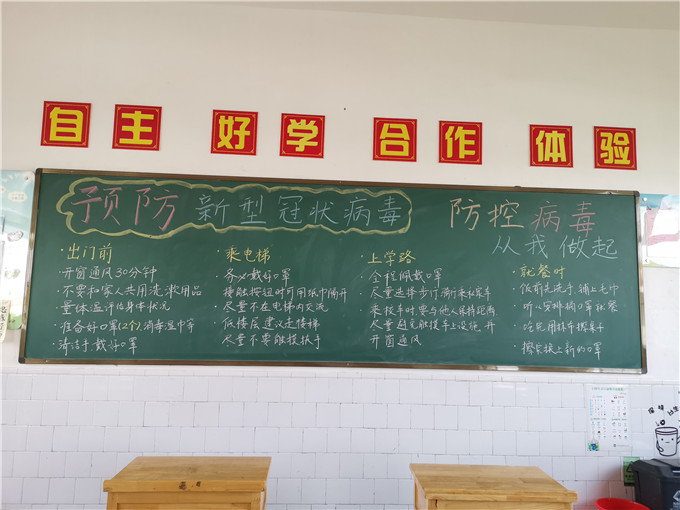 自主 好学 合作 体验
预防新型冠状病毒
防控病毒
从我做起
·出门前
开窗通风30分钟
不要和家人共用洗漱用品
量体温评估身体状况
准备好口罩(2个)消毒湿巾等
清洁手、戴好口罩
乘电梯
务必戴好口罩
接触按钮时可用纸巾隔开
尽量不在电梯内交流
低楼层建议走楼梯
尽量不要触摸扶手
·上学路
全程佩戴口罩
尽量选择步行、骑行乘私家车
乘校车时,要与他人保持距离
尽量避免触摸车上设施、开
开窗通风
·就餐时
饭前先洗手 铺上毛巾
听从安排摘口罩就餐
吃完用抹布擦桌子
擦完换上新的口罩